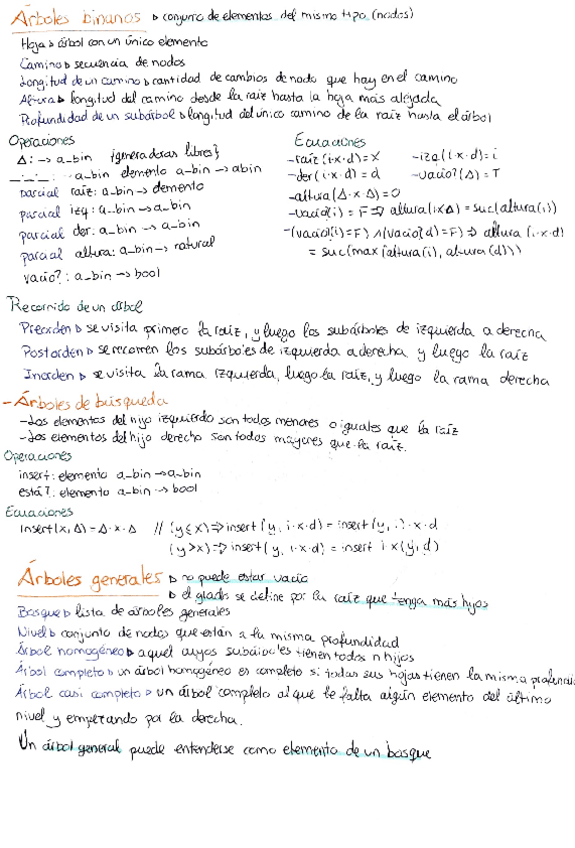 Árboles binarios ▷ conjunto de elementos del mismo tipo (nodos)
Hoja ▷ árbol con un único elemento
Camino ▷ secuencia de nodos
Longitud de un camino ▷ cantidad de cambios de nodo que hay en el camino
Altura ▷ longitud del camino desde la raíz hasta la hoja más alejada
Profundidad de un subárbol ▷ longitud del único camino de la raíz hasta el árbol
Operaciones
Δ: → a_bin {generadoras libres}
_·_·_: a_bin elemento a_bin → abin
parcial raíz: a_bin → elemento
parcial izq: a_bin → a_bin
parcial der: a_bin → a_bin
parcial altura: a_bin → natural
vacio?: a_bin → bool
Ecuaciones
-raíz(i·x·d) = x -izq(i·x·d) = i
-der(i·x·d) = d -vacio?(Δ) = T
-altura(Δ·x·Δ) = 0
-vacio(i) = F ⇒ altura(i·x·Δ) = suc(altura(i))
-(vacio(i) = F) ∧ (vacio(d) = F) ⇒ altura(i·x·d)
= suc(max(altura(i), altura(d)))
Recorrido de un árbol
Preorden ▷ se visita primero la raíz, y luego los subárboles de izquierda a derecha
Postorden ▷ se recorren los subárboles de izquierda a derecha y luego la raíz
Inorden ▷ se visita la rama izquierda, luego la raíz, y luego la rama derecha
- Árboles de búsqueda
-Los elementos del hijo izquierdo son todos menores o iguales que la raíz
-Los elementos del hijo derecho son todos mayores que la raíz.
Operaciones
insert: elemento a_bin → a_bin
está?: elemento a_bin → bool
Ecuaciones
insert(x, Δ) = Δ·x·Δ // (y≤x) ⇒ insert(y, i·x·d) = insert(y, i)·x·d
(y>x) ⇒ insert(y, i·x·d) = insert i·x(y, d)
Árboles generales ▷ no puede estar vacio
▷ el grado se define por la raíz que tenga más hijos
Bosque ▷ lista de árboles generales
Nivel ▷ conjunto de nodos que están a la misma profundidad
Árbol homogéneo ▷ aquel cuyos subárboles tienen todos n hijos
Árbol completo ▷ un árbol homogéneo es completo si todas sus hojas tienen la misma
Árbol casi completo ▷ un árbol completo al que le falta algún elemento del último
nivel y empezando por la derecha.
Un árbol general puede entenderse como elemento de un bosque